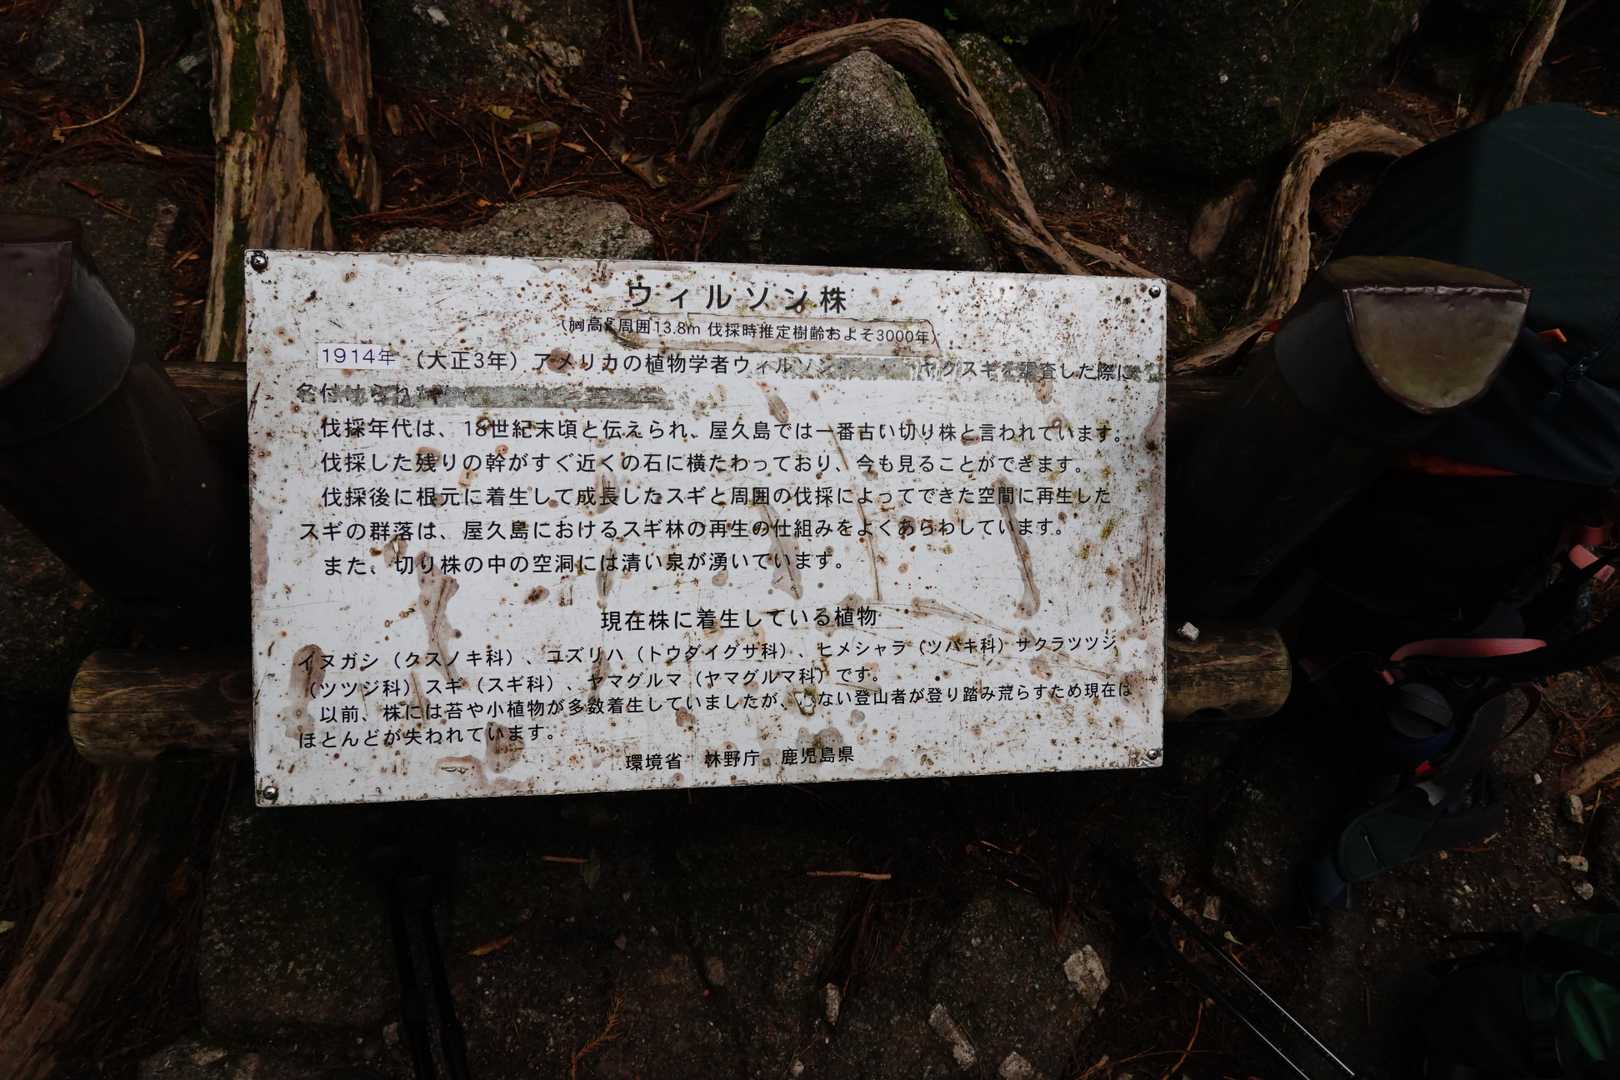 ウィルソン株
（胸高周囲13.8m 伐採時推定樹齢およそ3000年）
1914年（大正3年）アメリカの植物学者ウィルソン ヤクスギを調査した際に
名付けられ
伐採年代は、18世紀末頃と伝えられ、屋久島では一番古い切り株と言われています。
伐採した残りの幹がすぐ近くの石に横たわっており、今も見ることができます。
伐採後に根元に着生して成長したスギと周囲の伐採によってできた空間に再生した
スギの群落は、屋久島におけるスギ林の再生の仕組みをよくあらわしています。
また、切り株の中の空洞には清い泉が湧いています。
現在株に着生している植物
イヌガシ（クスノキ科）、ユズリハ（トウダイグサ科）、ヒメシャラ（ツバキ科）サクラツツジ
（ツツジ科）スギ（スギ科）、ヤマグルマ（ヤマグルマ科）です。
以前、株には苔や小植物が多数着生していましたが、ない登山者が登り踏み荒らすため現在は
ほとんどが失われています。
環境省 林野庁 鹿児島県